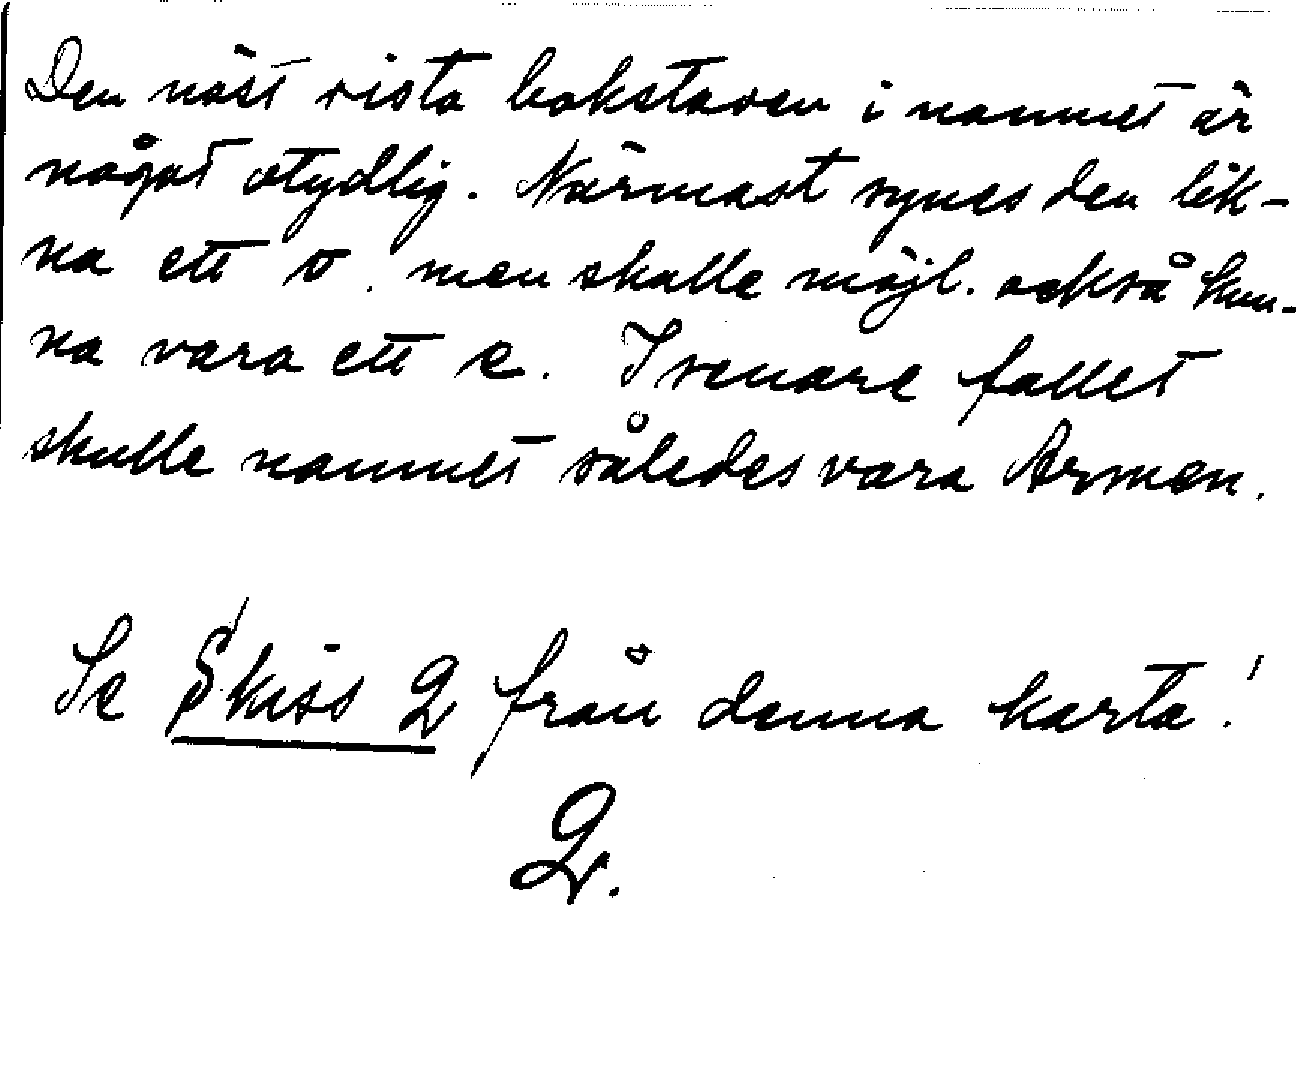 Den näst sista bokstaven i namnet är
något otydlig. Närmast synes den lik-
na ett o. men skulle möjl. också kun-
na vara ett e. I senare fallet
skulle namnet således vara Armen.
Se Skiss 2 från denna karta!
2.